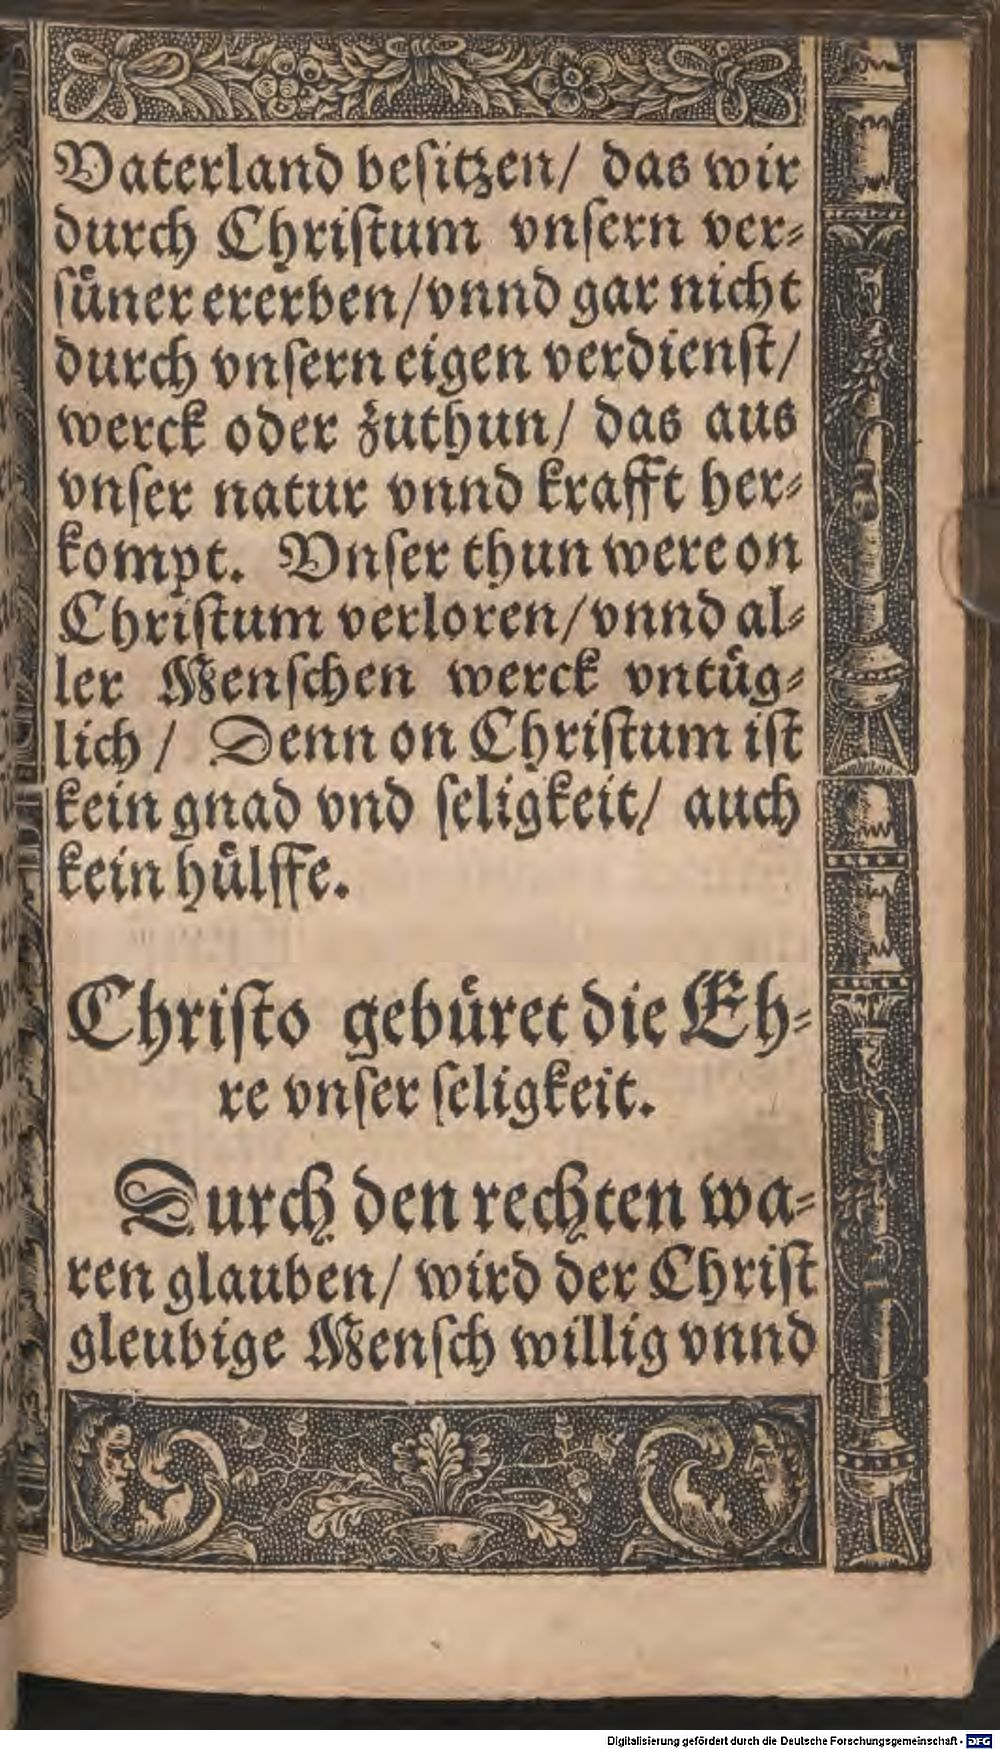 Vaterland beſitzen/ das wir
durch Chriſtum vnſern ver⸗
ſuͤner ererben/vnnd gar nicht
durch vnſern eigen verdienſt/
werck oder zuthun/ das aus
vnſer natur vnnd krafft her⸗
kompt. Vnſer thun were on
Chriſtum verloren/vnnd al⸗
ler Menſchen werck vntuͤg⸗
lich/ Denn on Chriſtum iſt
kein gnad vnd ſeligkeit/ auch
kein huͤlffe.
Chriſto gebuͤret die Eh⸗
re vnſer ſeligkeit.
Durch den rechten wa⸗
ren glauben/ wird der Chriſt
gleubige Menſch willig vnnd
Digitalisierung gefördert durch die Deutsche Forschungsgemeinschaft - DFG